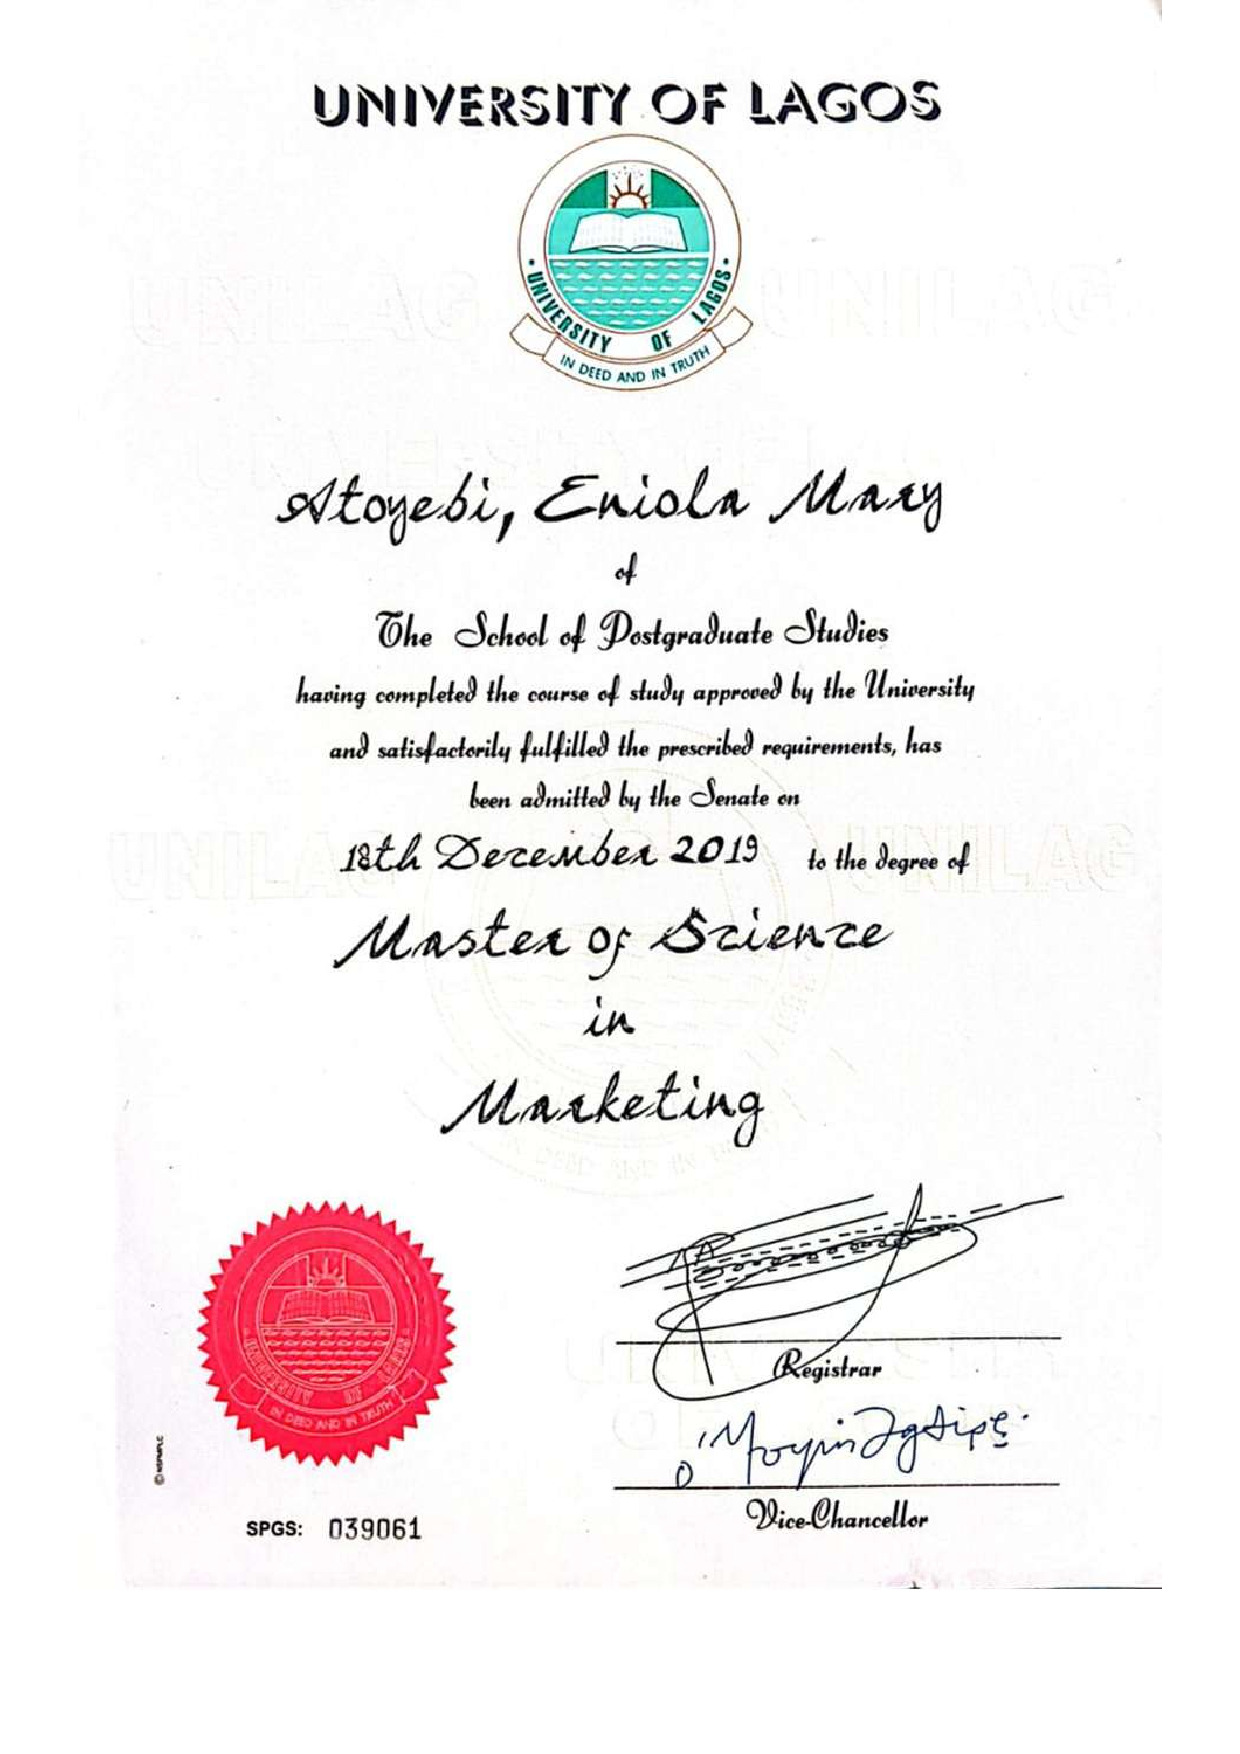 UNIVERSITY OF LAGOS
UNIVERSITY OF LAGOS
IN DEED AND IN TRUTH
UNILAG UNILAG
Atoyebi, Eniola Mary
of
The School of Postgraduate Studies
having completed the course of study approved by the University
and satisfactorily fulfilled the prescribed requirements, has
been admitted by the Senate on
18th December 2019 to the degree of
UNILAG UNILAG
Master of Science
in
Marketing
UNIVERSITY OF LAGOS
IN DEED AND IN TRUTH
Registrar
Vice-Chancellor
SPGS: 039061